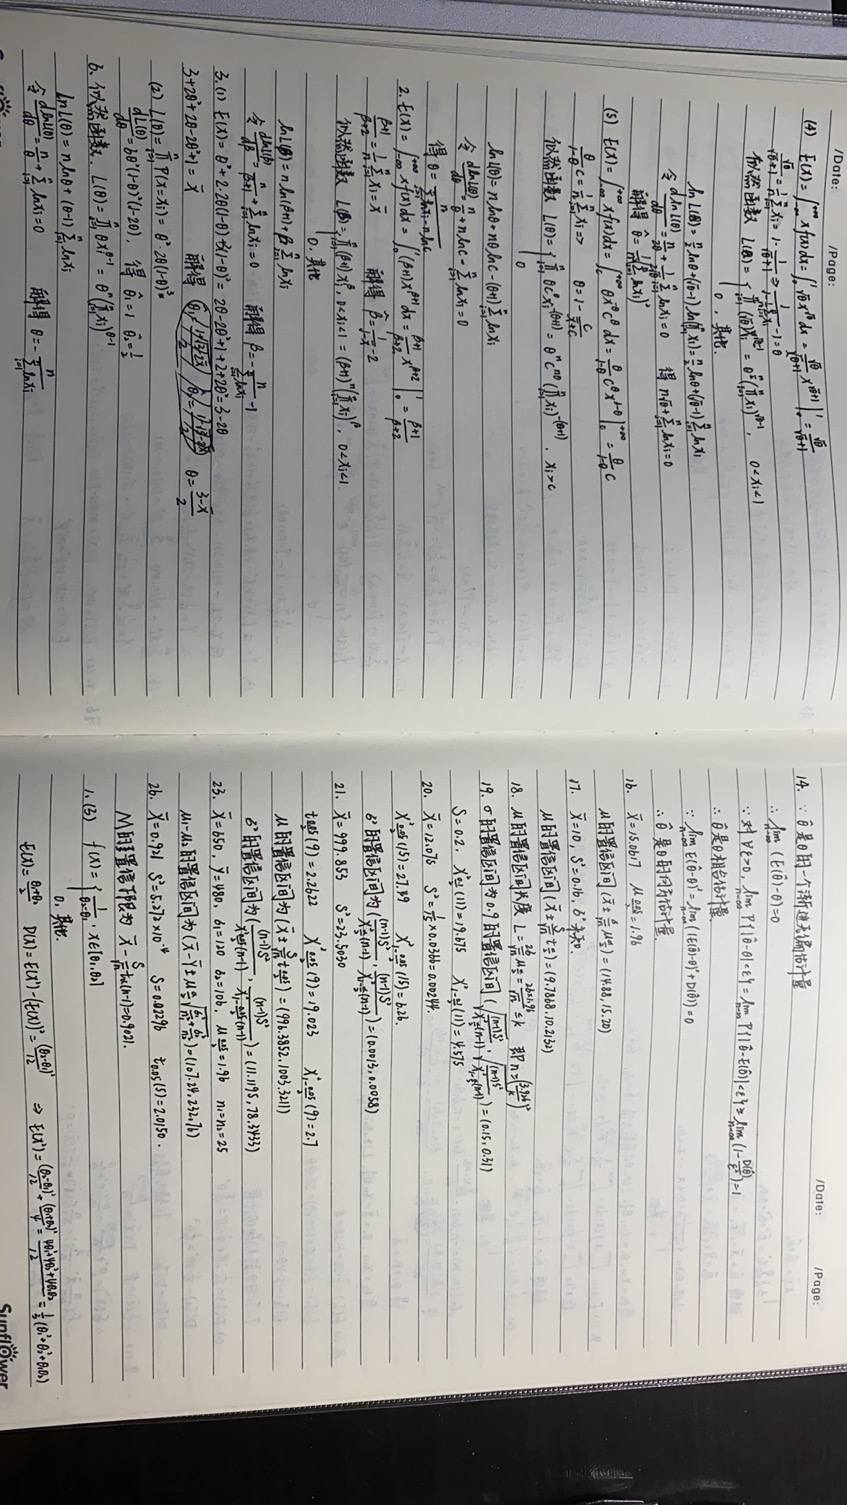 /Date: /Page:
(4) E(X)=∫_{-∞}^{+∞} xf(x)dx=∫_0^1 √θ x^{√θ}dx=√θ/(√θ+1) x^{√θ+1}|_0^1=√θ/(√θ+1)
似然函数 L(θ)={∏_{i=1}^n (√θ)x_i^{√θ-1}=θ^{n/2}(∏_{i=1}^n x_i)^{√θ-1}, 0<x_i<1
0, 其他.
lnL(θ)=n/2 lnθ+(√θ-1)ln(∏_{i=1}^n x_i)=n/2 lnθ+(√θ-1)∑_{i=1}^n lnx_i
令 dlnL(θ)/dθ=n/2θ+1/2√θ ∑_{i=1}^n lnx_i=0 得 n√θ+∑_{i=1}^n lnx_i=0
(5) E(X)=∫_{-∞}^{+∞} xf(x)dx=
似然函数 L(θ)={∏_{i=1}^n θc^θx_i^{-(θ+1)}=θ^n c^{nθ}(∏_{i=1}^n x_i)^{-(θ+1)}, x_i>c
0
lnL(θ)=n lnθ+nθlnc-(θ+1)∑_{i=1}^n lnx_i
令 dlnL(θ)/dθ=n/θ+n lnc-∑_{i=1}^n lnx_i=0
得 θ=n/(∑_{i=1}^n lnx_i-n lnc)
2. E(X)=∫_{-∞}^{+∞} xf(x)dx=∫_0^1 (β+1)x^{β+1}dx=(β+1)/(β+2) x^{β+2}|_0^1=(β+1)/(β+2)
(β+1)/(β+2)=1/n ∑_{i=1}^n x_i=x̄ 解得 β̂=1/(1-x̄)-2
似然函数 L(β)={∏_{i=1}^n (β+1)x_i^β, 0<x_i<1 =(β+1)^n(∏_{i=1}^n x_i)^β, 0<x_i<1
0. 其他
lnL(β)=n ln(β+1)+β∑_{i=1}^n lnx_i
令 dlnL(β)/dβ=n/(β+1)+∑_{i=1}^n lnx_i=0 解得 β=-n/(∑_{i=1}^n lnx_i)-1
3.(1) E(X)=θ²+2·2θ(1-θ)+3(1-θ)²=2θ-2θ²+1+2+2θ²=3-2θ
3+2θ²+2θ-2θ²+1=x̄ 解得 θ=(3-x̄)/2
(2) L(θ)=∏_{i=1}^n P(X=x_i)=θ²·2θ(1-θ)=
6. 似然函数. L(θ)=∏_{i=1}^n θx_i^{θ-1}=θ^n(∏_{i=1}^n x_i)^{θ-1}
lnL(θ)=n lnθ+(θ-1)∑_{i=1}^n lnx_i
令 dlnL(θ)/dθ=n/θ+∑_{i=1}^n lnx_i=0 解得 θ=-n/(∑_{i=1}^n lnx_i)
/Date: /Page:
14. ∵ θ̂是θ的一个渐进无偏估计量
∴ lim_{n→∞}(E(θ̂)-θ)=0
∵ 对∀ε>0, lim_{n→∞} P{|θ̂-θ|<ε}=lim_{n→∞} P{|θ̂-E(θ̂)|<ε}≥lim_{n→∞}(1-D(θ̂)/ε²)=1
∴ θ̂是θ相合估计量.
∵ lim_{n→∞} E(θ̂-θ)²=lim_{n→∞}((E(θ̂)-θ)²+D(θ̂))=0
∴ θ̂是θ的均方估计量.
16. x̄=15.0617 μ_{0.025}=1.96
μ的置信区间(x̄±σ/√n μ_{α/2})=(14.88,15.20)
17. x̄=10, S²=0.16, σ²未知.
μ的置信区间(x̄±S/√n t_{α/2})=(9.7868,10.2132)
18. μ的置信区间长度 L=2σ/√n μ_{α/2}=2σ×1.96/√n≤k 即n≥(3.92σ/k)²
19. σ的置信区间为0.9的置信区间(√((n-1)S²/χ²_{α/2}(n-1)), √((n-1)S²/χ²_{1-α/2}(n-1)))=(0.15,0.31)
S=0.2, χ²_{α/2}(11)=19.675 χ²_{1-α/2}(11)=4.575
20. x̄=12.075 S²=1/15×0.0366=0.00244.
χ²_{0.025}(15)=27.49 χ²_{1-0.025}(15)=6.26
σ²的置信区间为((n-1)S²/χ²_{α/2}(n-1), (n-1)S²/χ²_{1-α/2}(n-1))=(0.0013,0.0058)
21. x̄=999.853 S²=23.5050
t_{0.025}(9)=2.2622 χ²_{0.025}(9)=19.023 χ²_{1-0.025}(9)=2.7
μ的置信区间为(x̄±S/√n t_{0.025})=(996.3852,1003.3211)
σ²的置信区间为((n-1)S²/χ²_{α/2}(n-1), (n-1)S²/χ²_{1-α/2}(n-1))=(11.1195,78.3433)
23. x̄=650, ȳ=480, σ₁=120 σ₂=106, μ_{0.025}=1.96 n₁=n₂=25
μ₁-μ₂的置信区间为(x̄-ȳ±μ_{α/2}√(σ₁²/n₁+σ₂²/n₂))=(107.24,232.76)
26. x̄=0.921 S²=5.272×10⁻⁴ S=0.0229b t_{0.05}(5)=2.0150.
M的置信下限为 x̄-S/√n t_α(n-1)=0.9021.
1.(3) f(x)={1/(θ₂-θ₁), x∈[θ₁,θ₂]
0. 其他.
E(X)=(θ₁+θ₂)/2 D(X)=E(X²)-(E(X))²=(θ₂-θ₁)²/12 ⇒ E(X²)=(θ₂-θ₁)²/12+(θ₁+θ₂)²/4=(4θ₁²+4θ₂²+4θ₁θ₂)/12=1/3(θ₁²+θ₂²+θ₁θ₂)
Sunflower